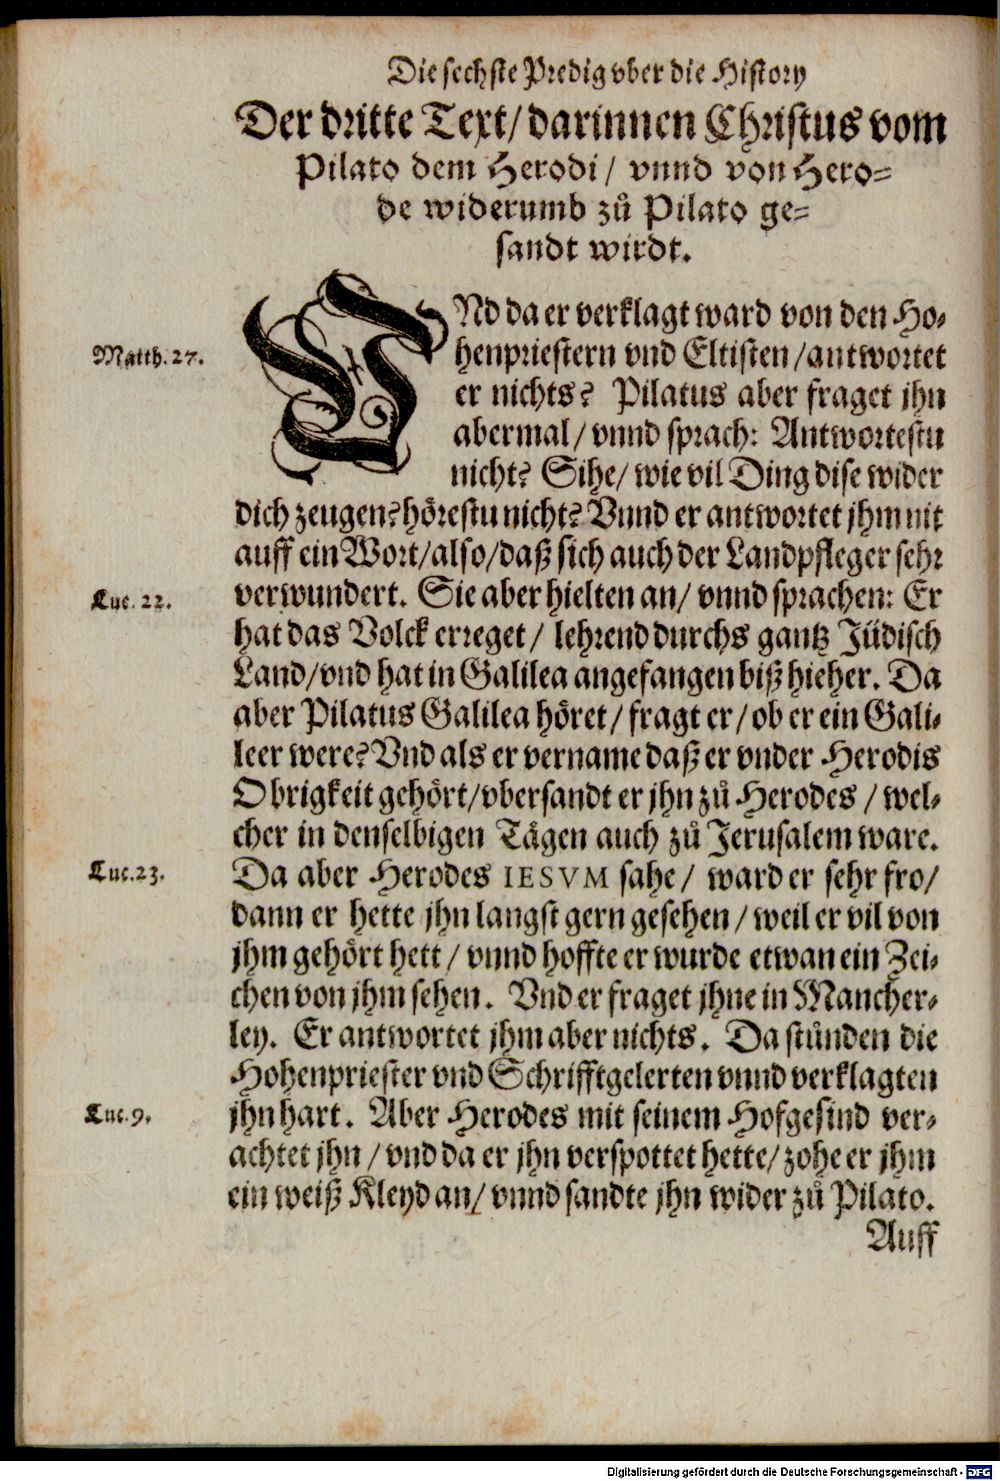 Die sechste Predig vber die History
Der dritte Text/ darinnen Christus vom
Pilato dem Herodi/ vnnd von Hero-
de widerumb zů Pilato ge-
sandt wirdt.
VNd da er verklagt ward von den Ho-
Matth. 27. henpriestern vnd Eltisten/ antwortet
er nichts? Pilatus aber fraget jhn
abermal/ vnnd sprach: Antwortestu
nicht? Sihe/ wie vil Ding dise wider
dich zeugen? hörestu nicht? Vnnd er antwortet jhm nit
auff ein Wort/ also/ daß sich auch der Landpfleger sehr
Luc. 22. verwundert. Sie aber hielten an/ vnnd sprachen: Er
hat das Volck erreget/ lehrend durchs gantz Jüdisch
Land/ vnd hat in Galilea angefangen biß hieher. Da
aber Pilatus Galilea höret/ fragt er/ ob er ein Gali-
leer were? Vnd als er vername daß er vnder Herodis
Obrigkeit gehört/ vbersandt er jhn zů Herodes/ wel-
cher in denselbigen Tägen auch zů Jerusalem ware.
Luc. 23. Da aber Herodes IESVM sahe/ ward er sehr fro/
dann er hette jhn langst gern gesehen/ weil er vil von
jhm gehört hett/ vnnd hoffte er wurde etwan ein Zei-
chen von jhm sehen. Vnd er fraget jhne in Mancher-
ley. Er antwortet jhm aber nichts. Da stůnden die
Hohenpriester vnd Schrifftgelerten vnnd verklagten
Luc. 9. jhn hart. Aber Herodes mit seinem Hofgesind ver-
achtet jhn/ vnd da er jhn verspottet hette/ zohe er jhm
ein weiß Kleyd an/ vnnd sandte jhn wider zů Pilato.
Auff
Digitalisierung gefördert durch die Deutsche Forschungsgemeinschaft - DFG